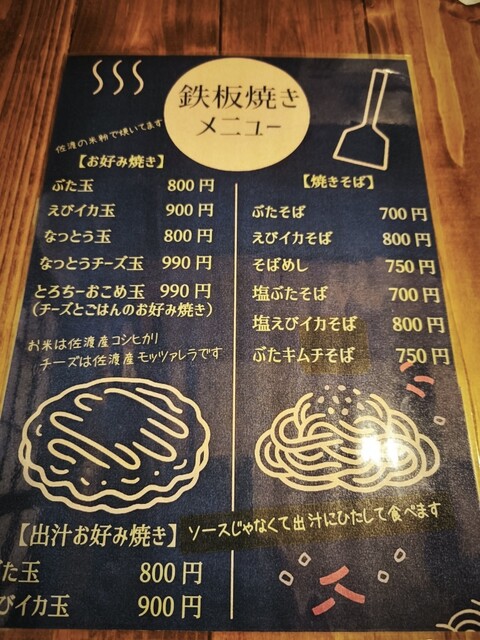 鉄板焼き
メニュー
佐渡の米粉で焼いてます
【お好み焼き】
ぶた玉 800円
えびイカ玉 900円
なっとう玉 800円
なっとうチーズ玉 990円
とろちーおこめ玉 990円
(チーズとごはんのお好み焼き)
お米は佐渡産コシヒカリ
チーズは佐渡産モッツァレラです
【焼きそば】
ぶたそば 700円
えびイカそば 800円
そばめし 750円
塩ぶたそば 700円
塩えびイカそば 800円
ぶたキムチそば 750円
【出汁お好み焼き】
ソースじゃなくて出汁にひたして食べます
ぶた玉 800円
びイカ玉 900円